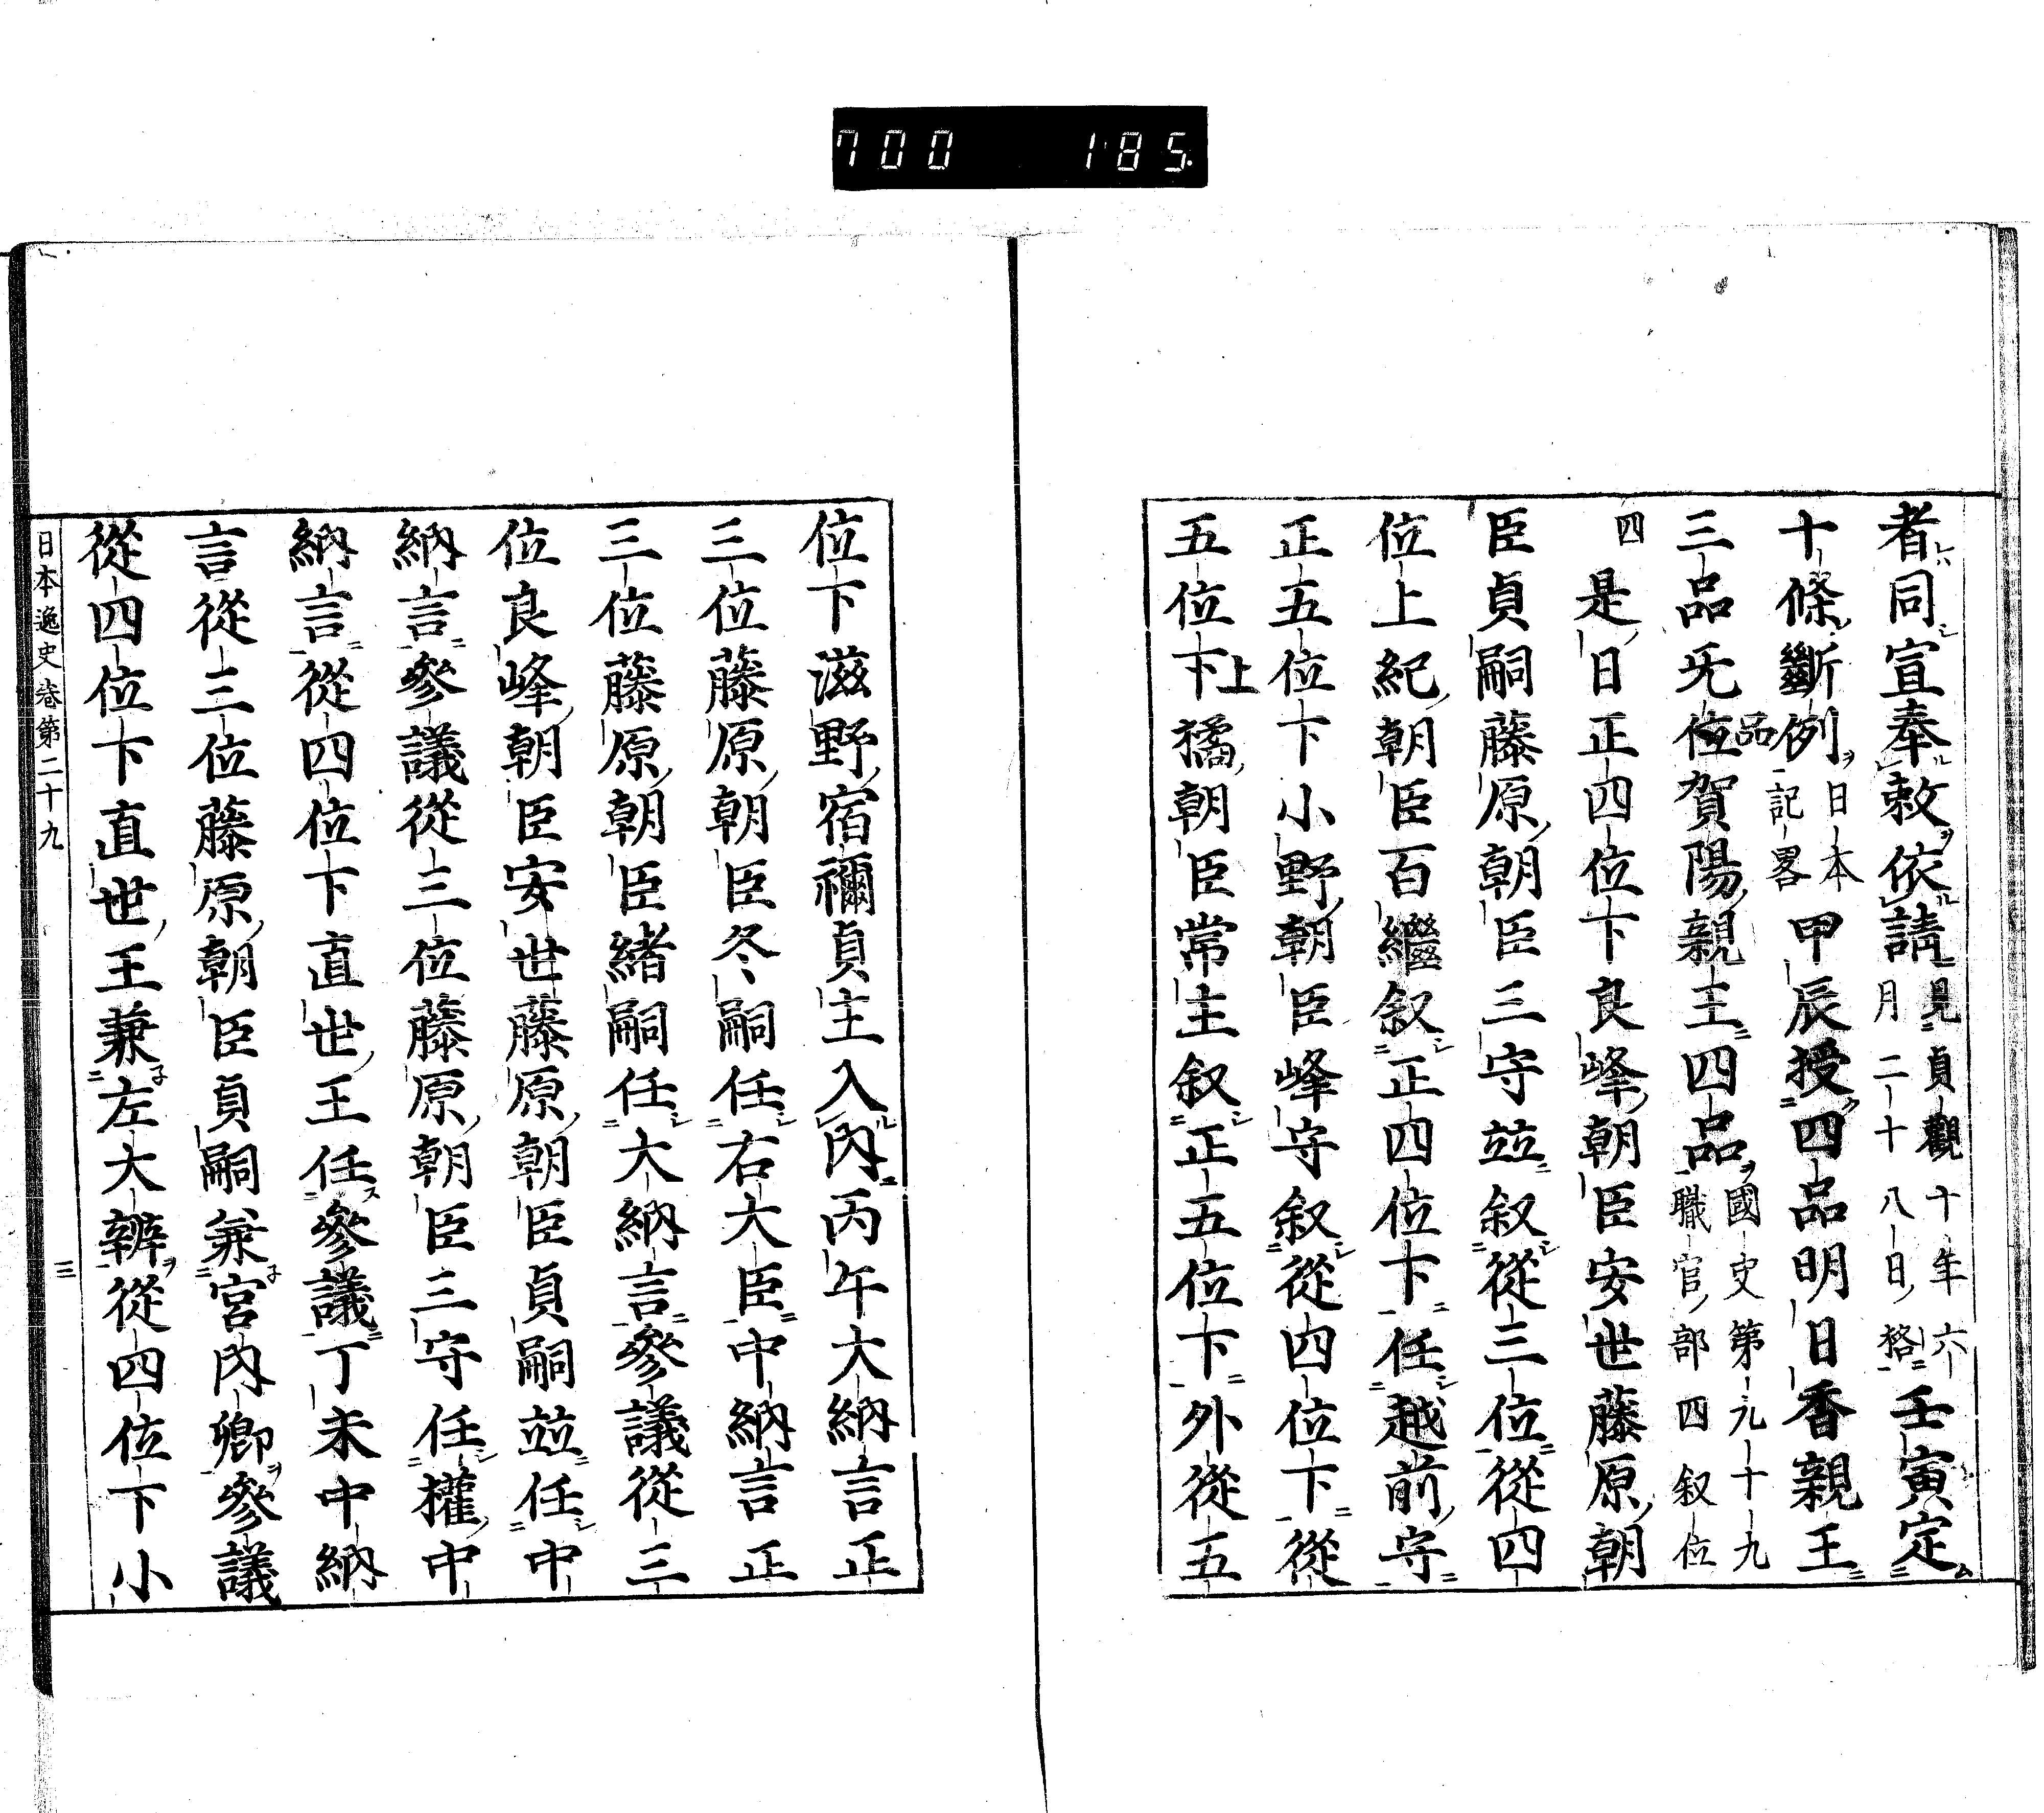 700 185
者同宣奉敕依請見貞觀十年六月二十八日格壬寅定
十條斷例日本記畧甲辰授四品明日香親王
三品无位品賀陽親王四品國史第九十九職官部四叙位
四是日正四位下良峰朝臣安世藤原朝
臣貞嗣藤原朝臣三守竝叙從三位從四
位上紀朝臣百繼叙正四位下任越前守
正五位下小野朝臣峰守叙從四位下從
五位下上橘朝臣常主叙正五位下外從五
位下滋野宿禰貞主入內丙午大納言正
三位藤原朝臣冬嗣任右大臣中納言正
三位藤原朝臣緒嗣任大納言參議從三
位良峰朝臣安世藤原朝臣貞嗣竝任中
納言參議從三位藤原朝臣三守任權中
納言從四位下直世王任參議丁未中納
言從三位藤原朝臣貞嗣兼宮內卿參議
從四位下直世王兼左大辨從四位下小
日本逸史卷第二十九 三